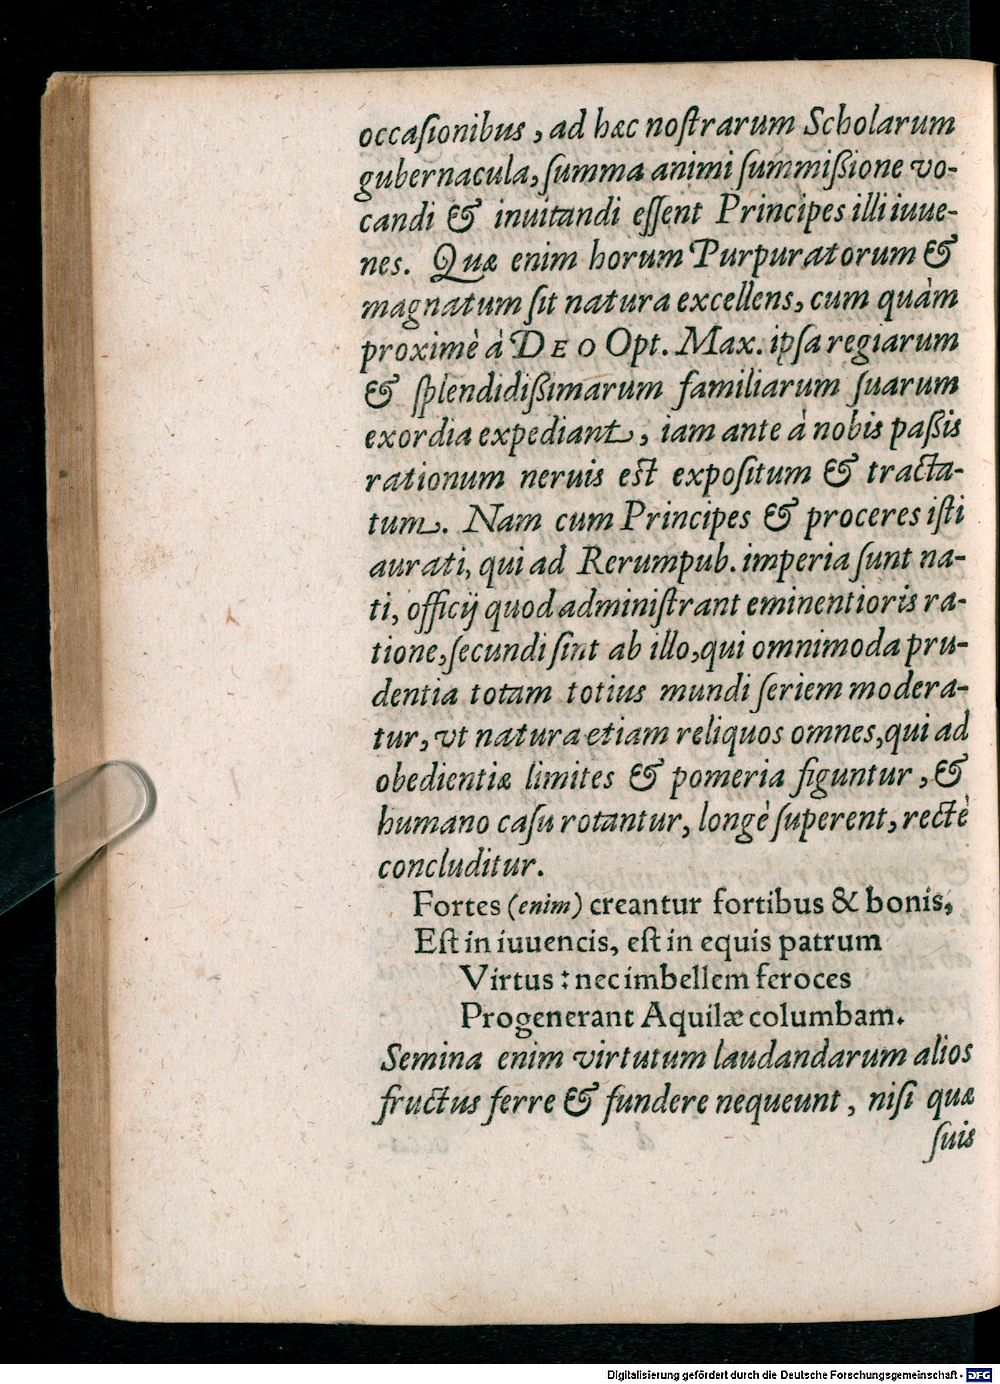 occaſionibus, ad hæc noſtrarum Scholarum
gubernacula, ſumma animi ſummißione vo-
candi & inuitandi eſſent Principes illi iuue-
nes. Quæ enim horum Purpuratorum &
magnatum ſit natura excellens, cum quàm
proximè à DEO Opt. Max. ipſa regiarum
& ſplendidißimarum familiarum ſuarum
exordia expediant, iam ante à nobis paßis
rationum neruis eſt expoſitum & tracta-
tum. Nam cum Principes & proceres iſti
aurati, qui ad Rerumpub. imperia ſunt na-
ti, officij quod adminiſtrant eminentioris ra-
tione, ſecundi ſint ab illo, qui omnimoda pru-
dentia totam totius mundi ſeriem modera-
tur, vt natura etiam reliquos omnes, qui ad
obedientiæ limites & pomeria figuntur, &
humano caſu rotantur, longè ſuperent, rectè
concluditur.
Fortes (enim) creantur fortibus & bonis,
Eſt in iuuencis, eſt in equis patrum
Virtus: nec imbellem feroces
Progenerant Aquilæ columbam.
Semina enim virtutum laudandarum alios
fructus ferre & fundere nequeunt, niſi quæ
ſuis
Digitalisierung gefördert durch die Deutsche Forschungsgemeinschaft - DFG